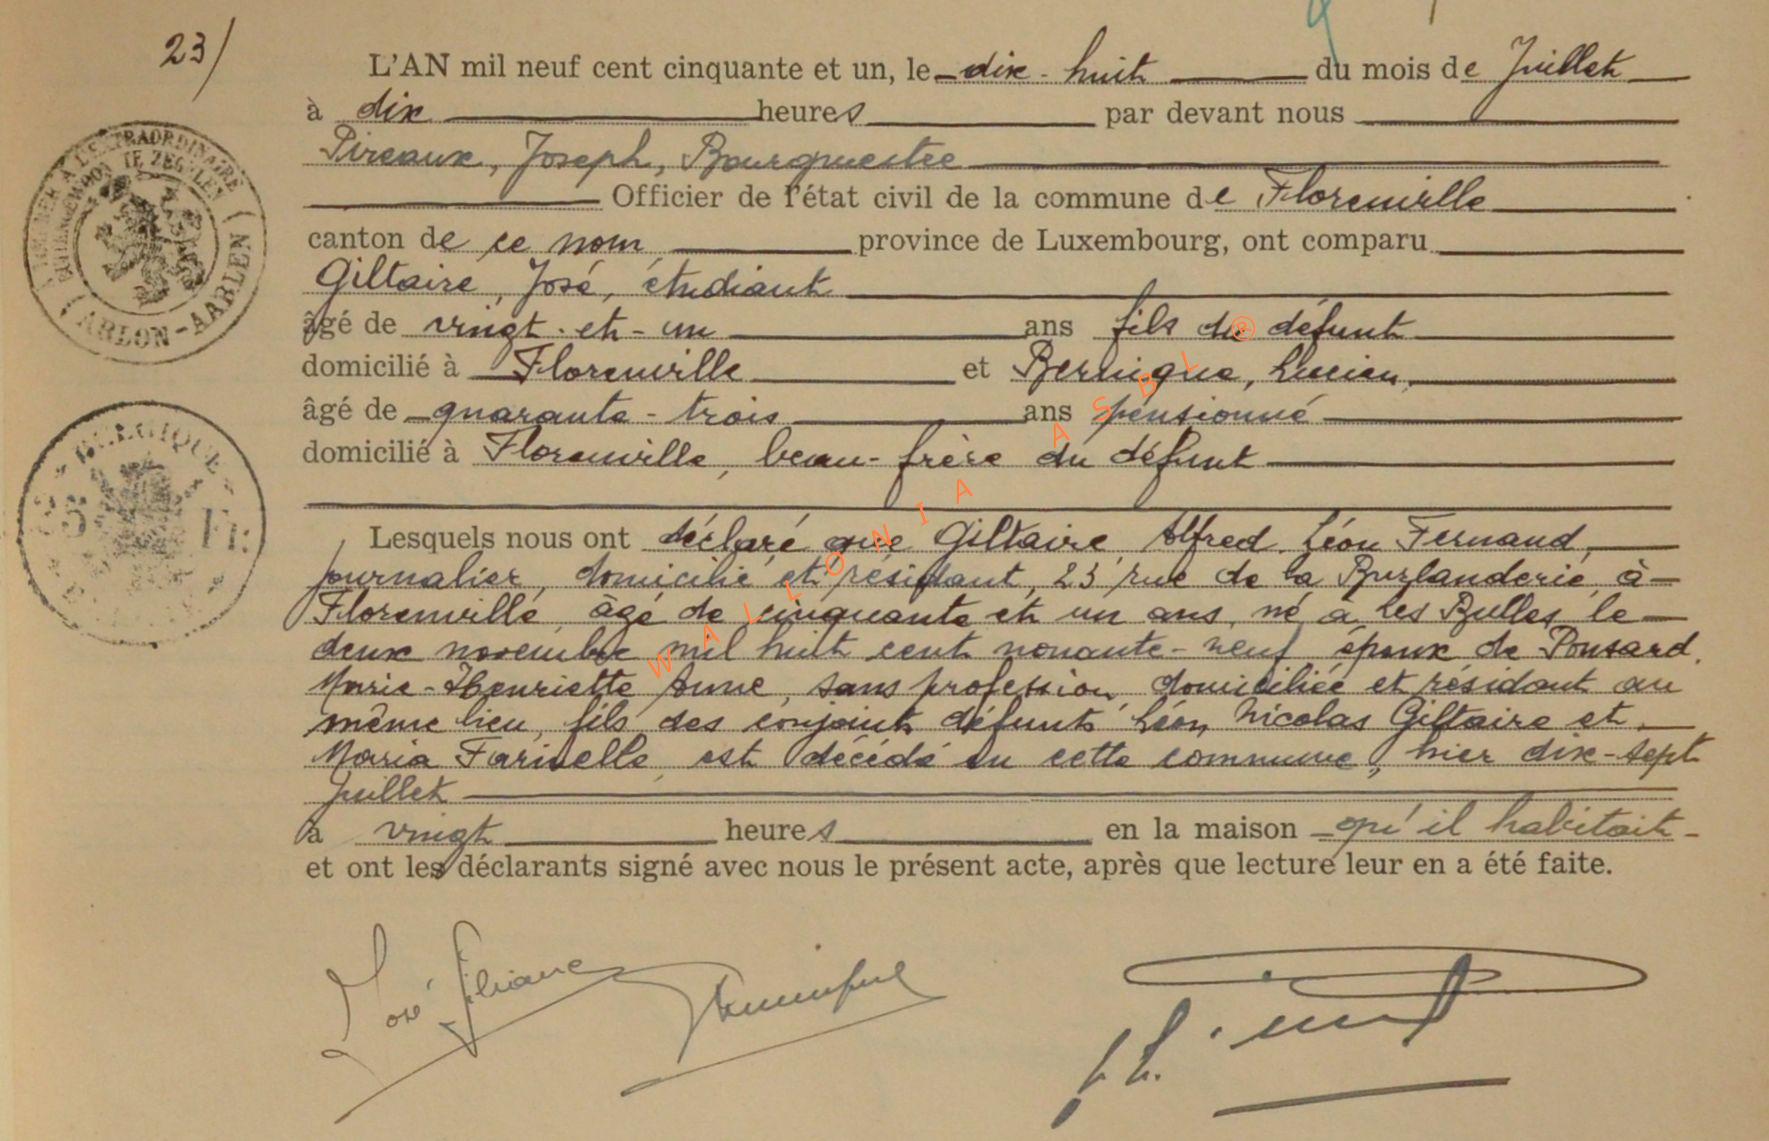 23/
L'AN mil neuf cent cinquante et un, le dix-huit du mois de Juillet
à dix heures par devant nous
Pireaux, Joseph, Bourgmestre
Officier de l'état civil de la commune de Florenville
canton de ce nom, province de Luxembourg, ont comparu
Giltaire, José, étudiant
âgé de vingt-et-un ans fils du défunt
domicilié à Florenville et Bernique, Lucien,
âgé de quarante-trois ans pensionné
domicilié à Florenville, beau-frère du défunt
Lesquels nous ont déclaré que Giltaire, Alfred, Léon Fernand,
journalier, domicilié et résidant, 23 rue de la à
Florenville, âgé de cinquante et un ans, né à Les Bulles le
deux novembre mil huit cent nonante-neuf époux de Ponsard,
Marie-Henriette Anne, sans profession, domiciliée et résidant au
même lieu, fils des conjoints défunts Léon, Nicolas Giltaire et
Maria Farinelle, est décédé en cette commune, hier dix-sept
juillet
à vingt heures en la maison qu'il habitait
et ont les déclarants signé avec nous le présent acte, après que lecture leur en a été faite.
José Giltaire
ARLON-AARLEN
BELGIQUE
5 Fr.
WALLONIA ASBL ®